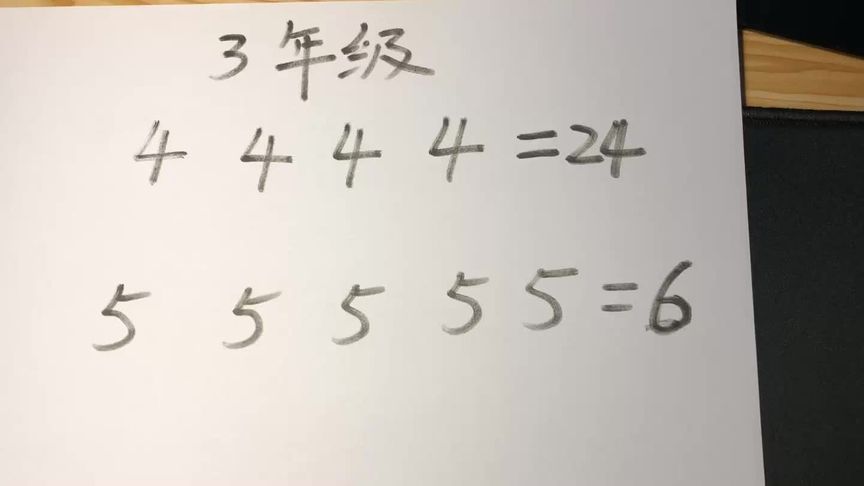 3年级
4 4 4 4 =24
5 5 5 5 5 =6